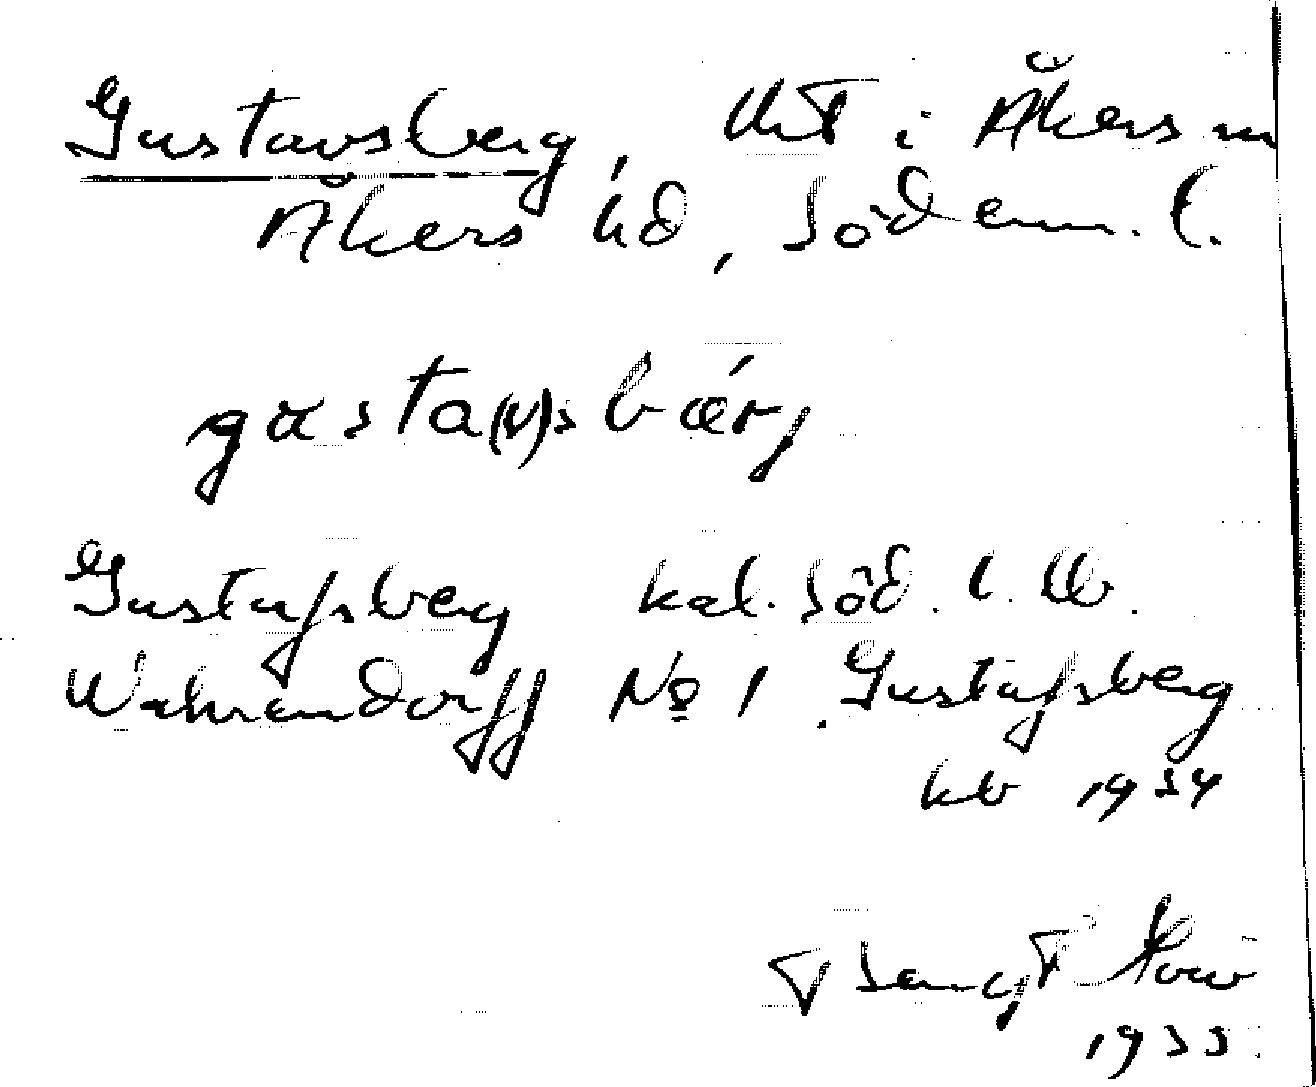 Gustavsberg, tht i Åkers sn
Åkers hd, Söderm. l.
gɷsta(v)sbær,j
Gustafsberg kal. Söd. l. 
Wahrendorff No 1 Gustafsberg
kb 1934
Bengt
1935